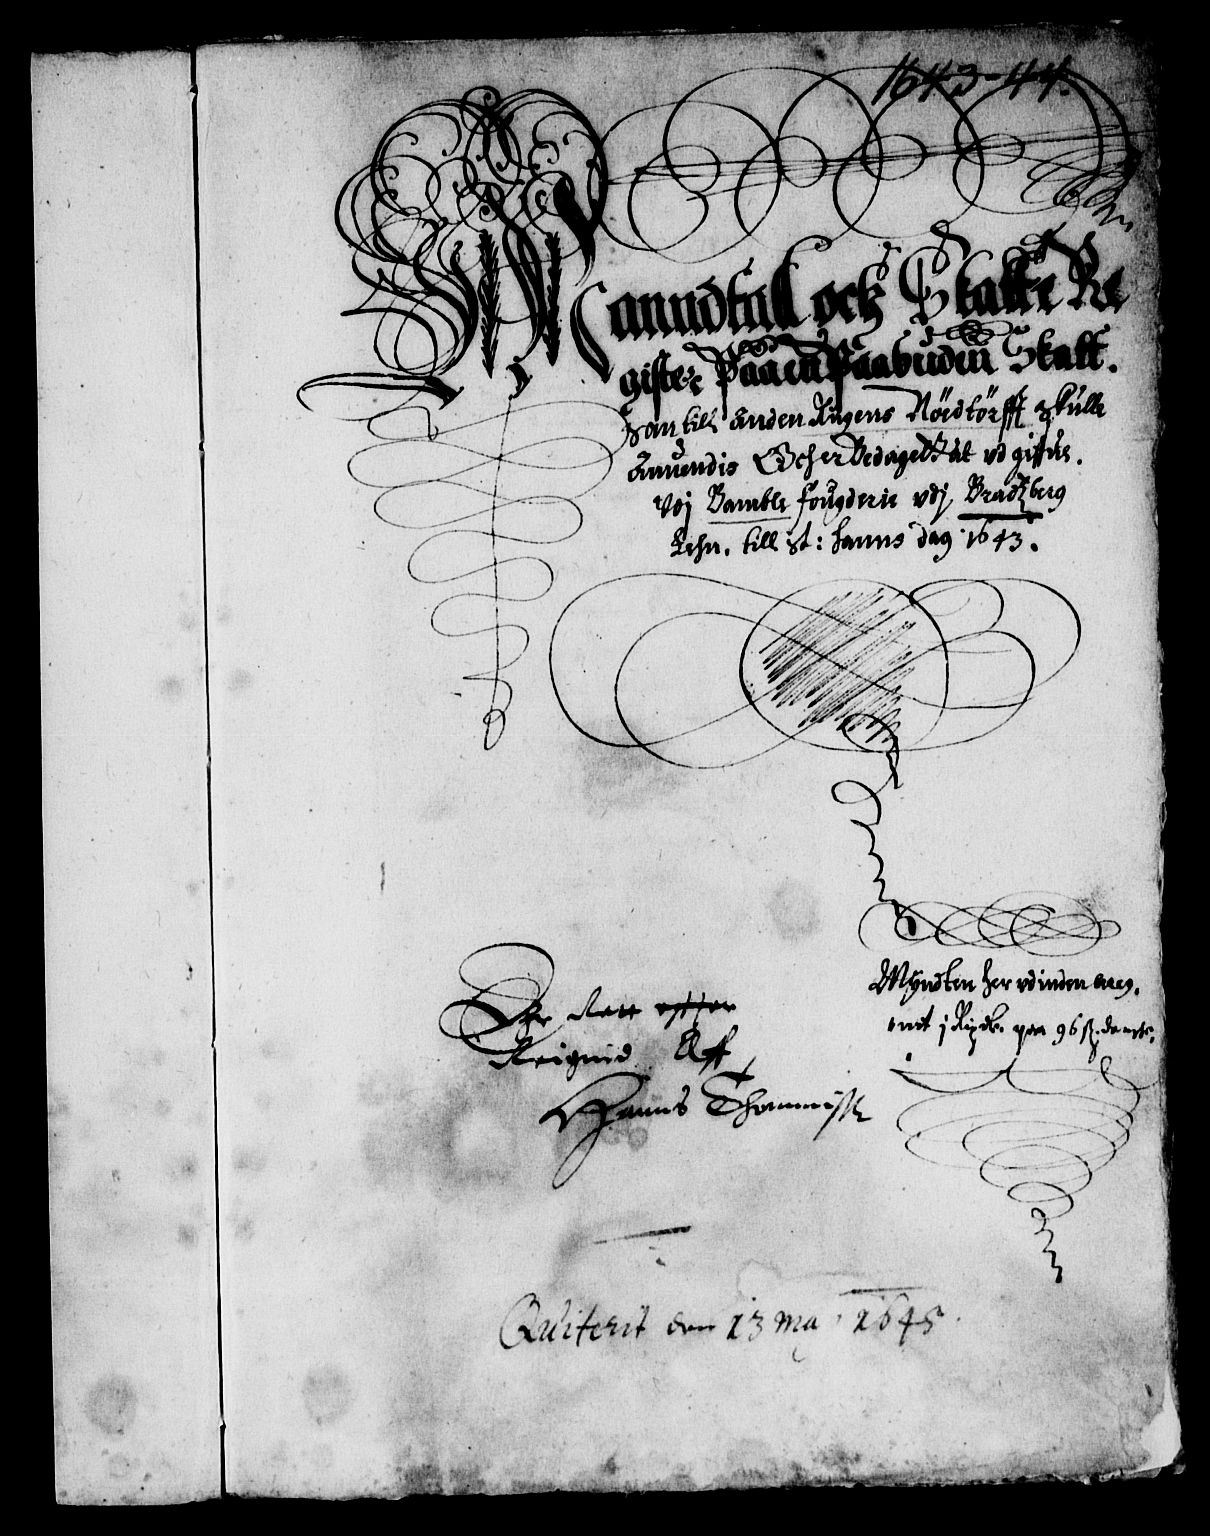 1643-44.
Manndtall och Skatte Re
gister Paa en Paabuden Skatt.
Som till Anden Rugens Nöedtörfft skulle
Anuendis Och er Bedaget at vdgiffue.
Vdj Bamble fougderie vdj Bradtzberg
Lehn. till St: hanns dag 1643.
Myndten her vdinden bereg.
enit j Rixdr. paa 96 ß. danske.
Er Rett effter
Reignid Aff
Hanns Thommissøn
Quiterit den 13 Maj 1645.